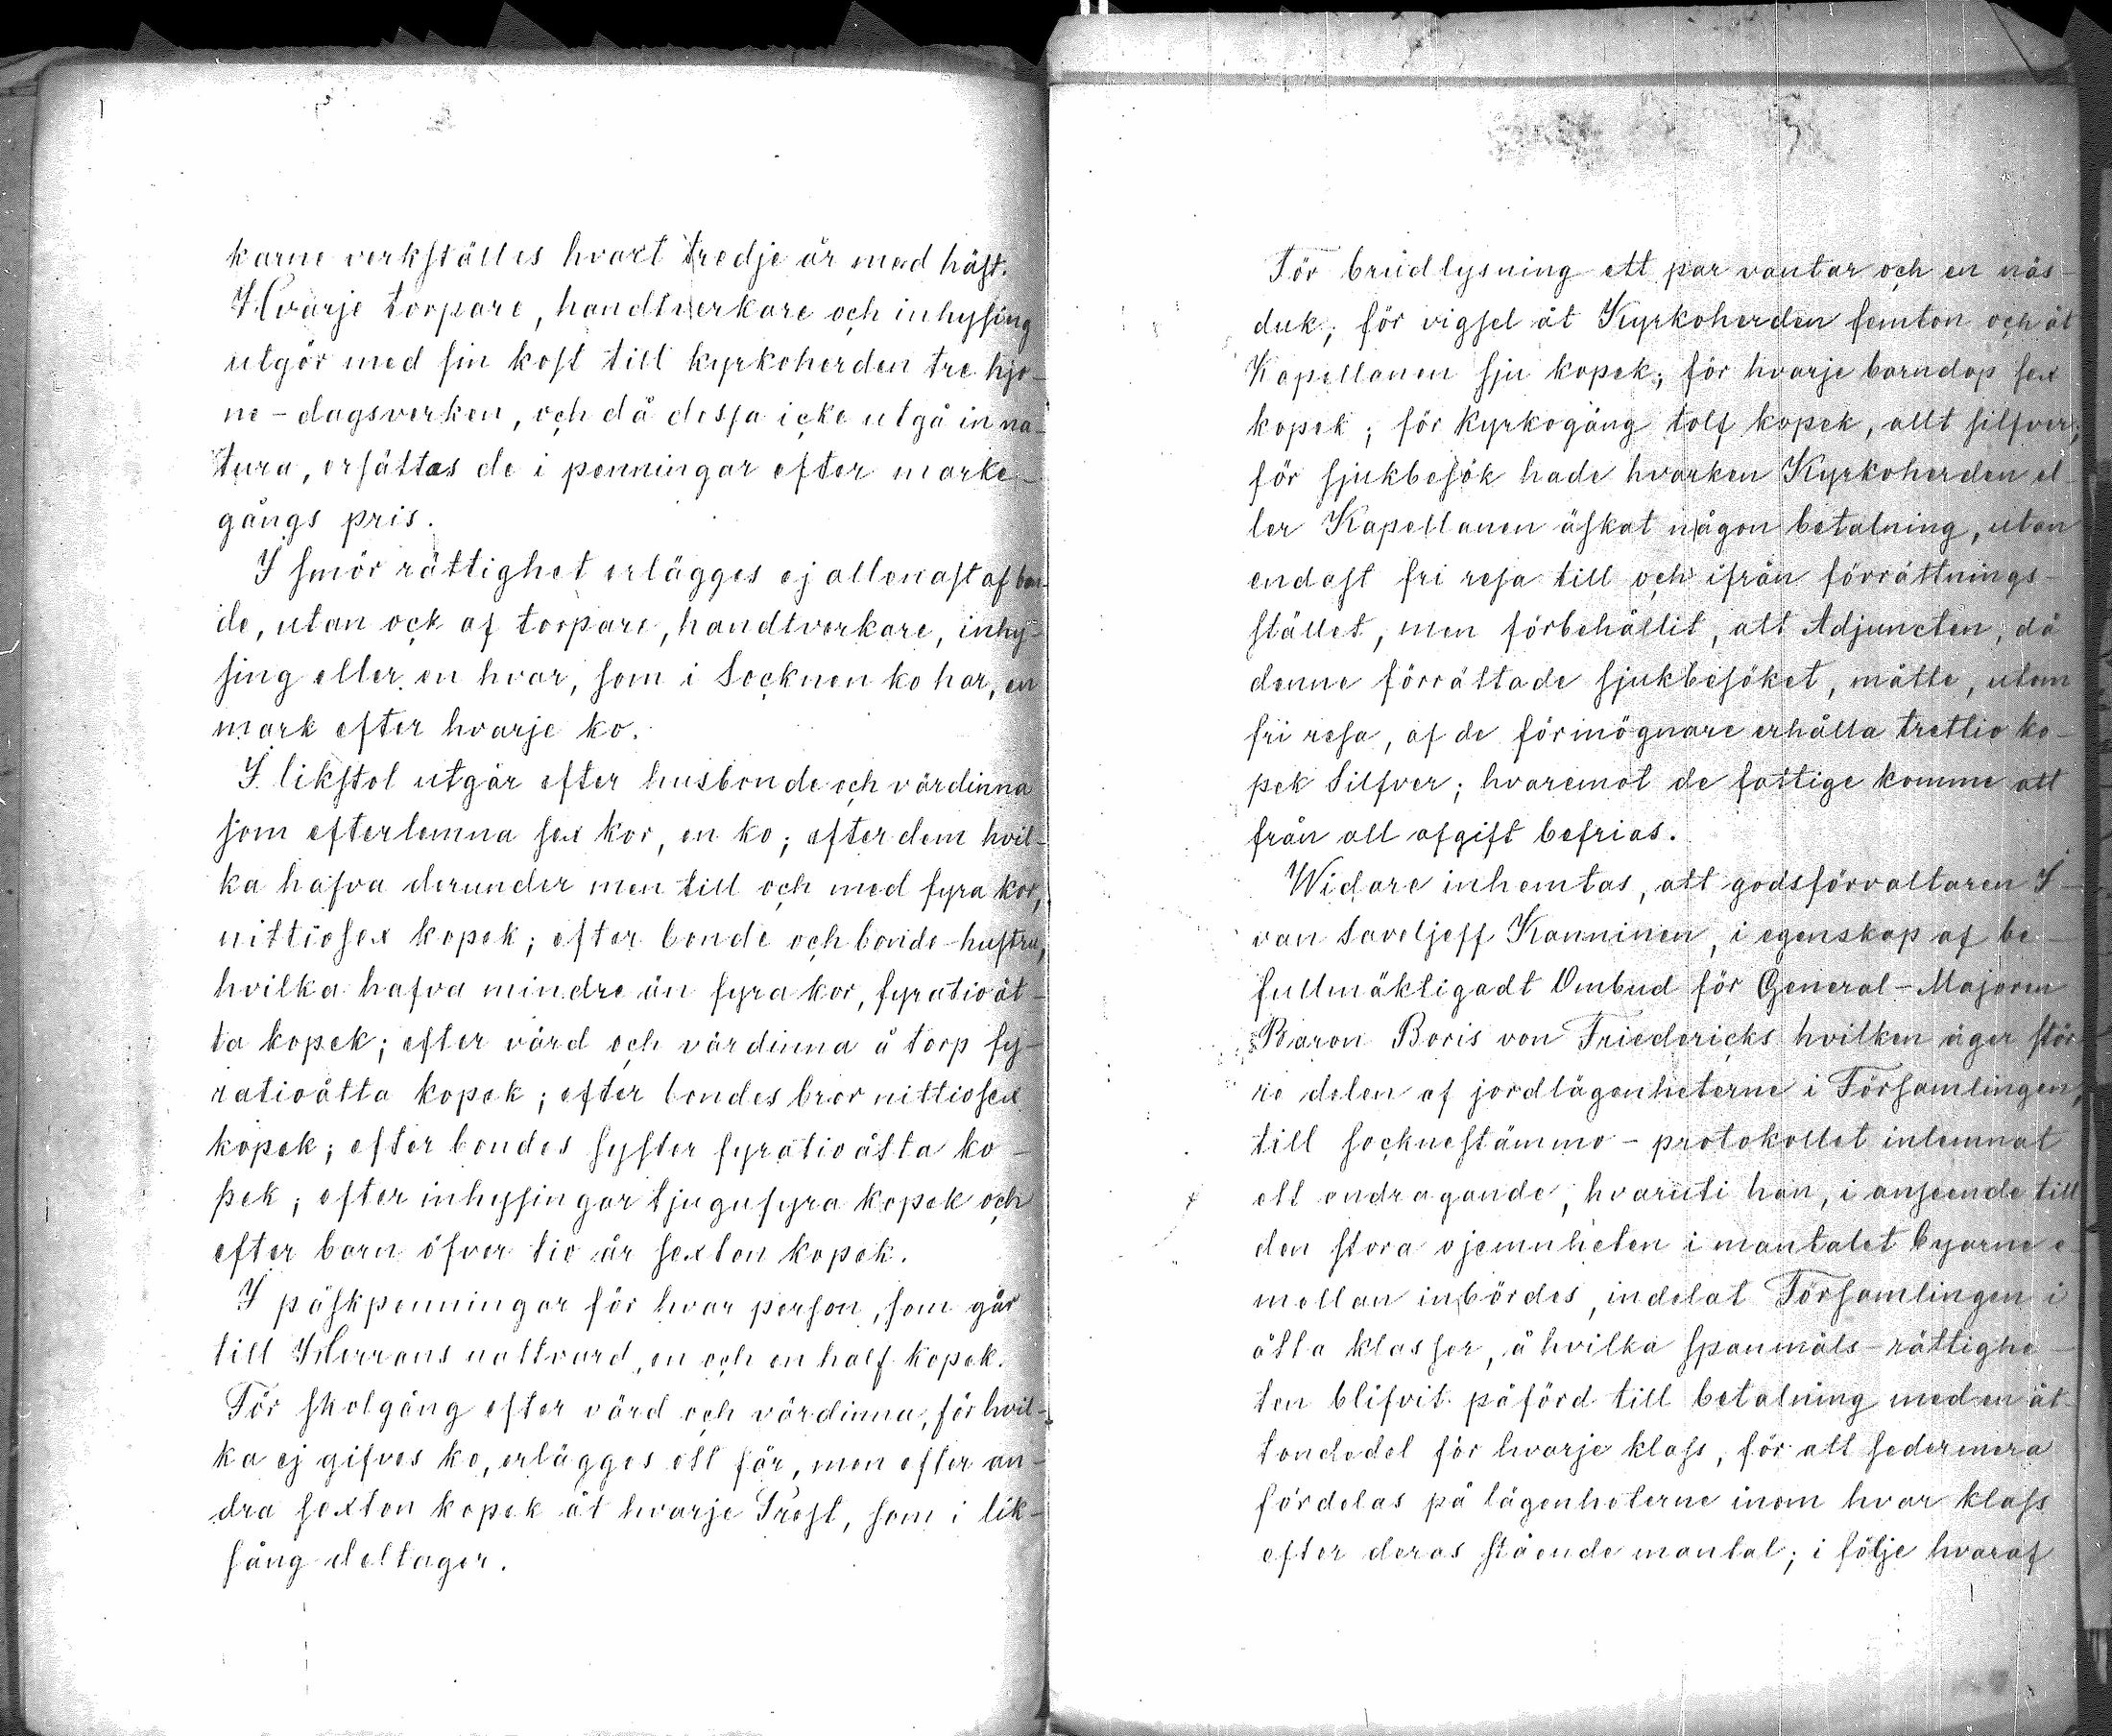 karne verkställes hvart tredje år med häst.
Hvarje torpare, handtverkare och inhysing
utgör med sin kost till kyrkoherden tre hjo-
ne-dagsverken, och då dessa icke utgå in na-
tura, ersättas de i penningar efter marke-
gångs pris.
I smör rättighet erlägges ej allenast af bon-
de, utan ock af torpare, handtverkare, inhy-
sing eller en hvar, som i Socknen ko har, en
mark efter hvarje ko.
I likstol utgår efter husbonde och värdinna
som efterlemna sex kor, en ko; efter dem hvil-
ka hafva derunder men till och med fyra kor,
nittiosex kopek; efter bonde och bonde-hustru,
hvilka hafva mindre än fyra kor, fyratioåt-
ta kopek; efter värd och värdinna å torp fy-
ratioåtta kopek; efter bondes bror nittiosex
kopek; efter bondes syster fyratioåtta ko-
pek; efter inhysingar tjugufyra kopek och
efter barn öfver tio år sexton kopek.
I påskpenningar för hvar person, som går
till Herrans nattvard, en och en half kopek.
För skolgång efter värd och värdinna, för hvil-
ka ej gifves ko, erlägges ett får, men efter an-
dra sexton kopek åt hvarje Prest, som i lik-
sång deltager.
För brudlysning ett par vantar och en näs-
duk; för vigsel åt Kyrkoherden femton och åt
Kapellanen sju kopek; för hvarje barndop sex
kopek; för kyrkogång tolf kopek, allt silfver;
för sjukbesök hade hvarken Kyrkoherden el-
ler Kapellanen äskat någon betalning, utan
endast fri resa till och ifrån förrättnings-
stället, men förbehållit, att Adjuncten, då
denne förrättade sjukbesöket, måtte, utom
fri resa, af de förmögnare erhålla trettio ko-
pek Silfver; hvaremot de fattige komme att
från all afgift befrias.
Widare inhemtas, att godsförvaltaren I-
van Saveljeff Kanninen, i egenskap af be-
fullmäktigadt Ombud för General-Majoren
Baron Boris von Friedericks hvilken äger stör-
re delen af jordlägenheterne i Församlingen,
till sockneståmmo-protokollet inlemnat
ett andragande, hvaruti han, i anseende till
den stora ojemnheten i mantalet byarne e
mellan inbördes, indelat Församlingen i
åtta klasser, å hvilka spanmåls-rättighe-
ten blifvit påförd till betalning med en åt-
tondedel för hvarje klass, för att sedermera
fördelas på lägenheterne inom hvar klass
efter deras stående mantal; i följe hvaraf